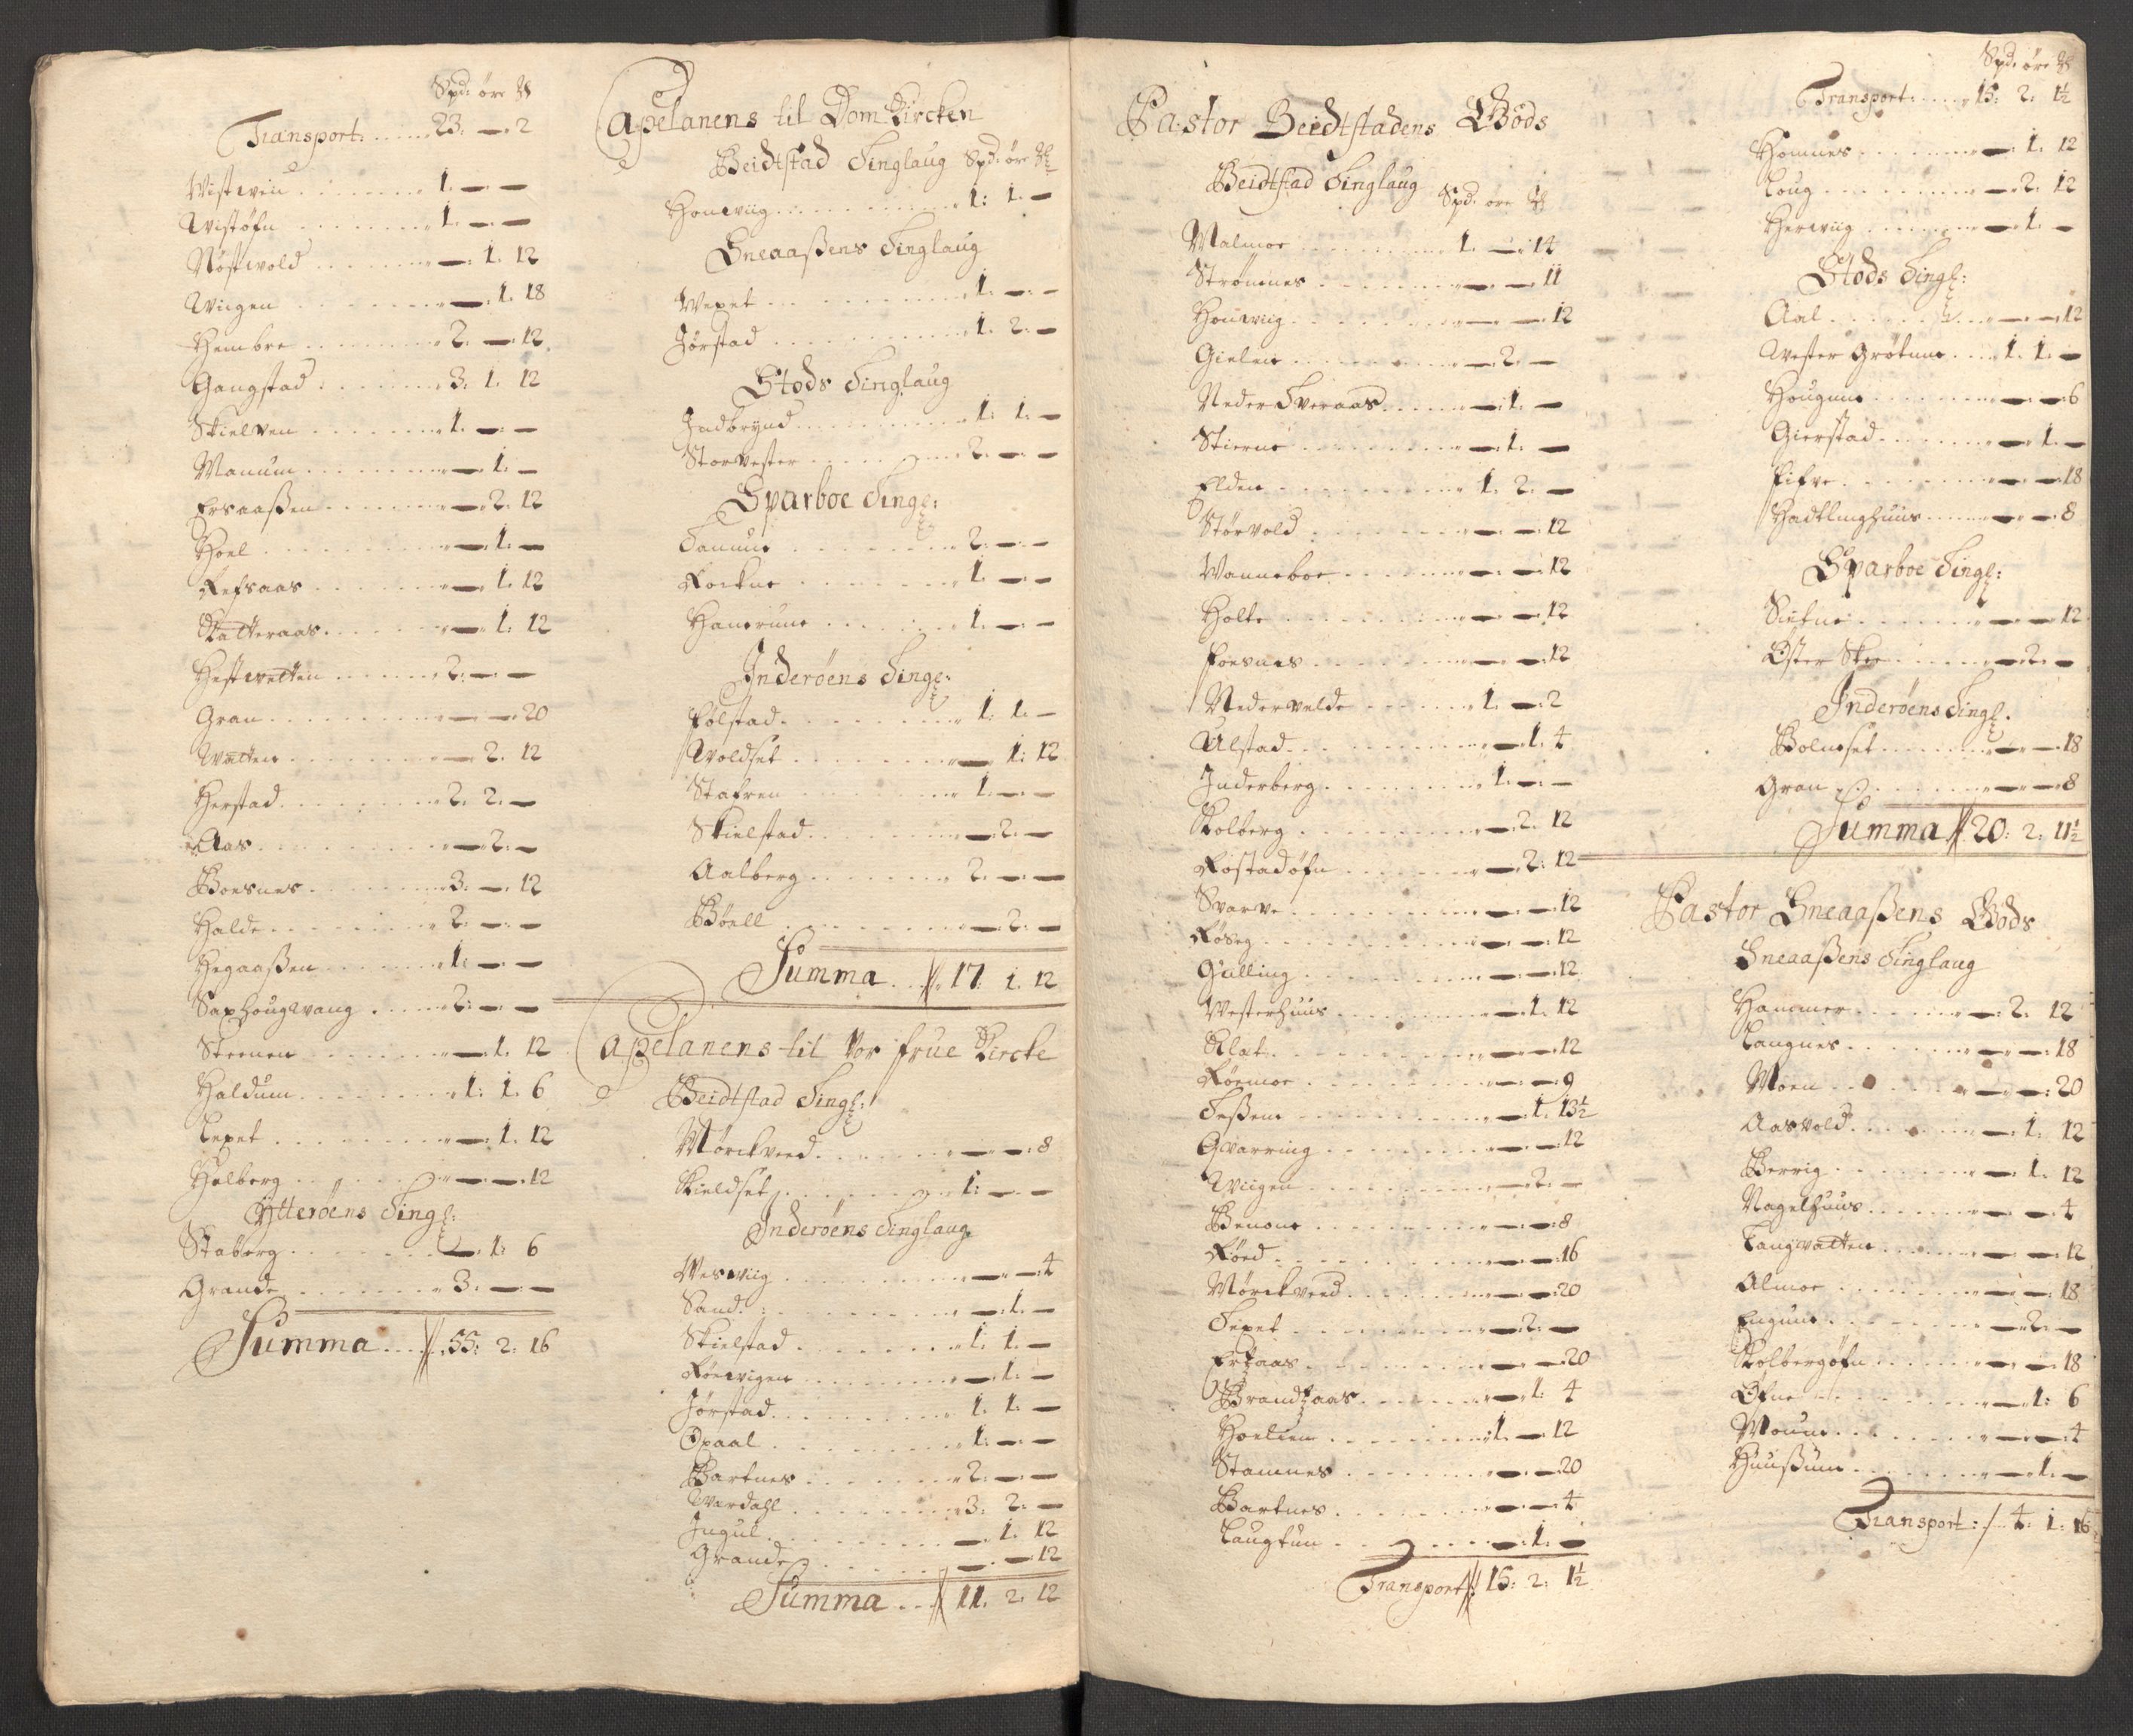 Spd: öre
Transport: 23: — 2
Wistwin 1. — —
Wistøfn 1. — —
Røstwold — 1. 12
Wiigen — 1. 18
Hembre 2. — 12
Gangstad 3. 1. 12
Skielven 1. — —
Manum — 1. —
Ersaaßen — 2. 12
Hoel — 1. —
Refsaas — 1. 12
Katteraas — 1: 12
Hestwetten 2: — —
Gran — — 20
Watten — 2. 12
Herstad 2. 2. —
Aas — 2. —
Boesnes 3. — 12
Halde 2. — —
Hegaaßen 1. — —
Saxhougwang 2. — —
Steenen — 1. 12
Haldum 1: 1. 6
Lexet — 1. 12
Holberg — — 12
Ytterøens Tingl:
Staberg — 1: 6
Grande 3. — —
Summa 55: 2: 16
Capelanens til Dom Kircken
Beidtstad Tinglaug Spd: öre
Houwiig 1: 1. —
Sneaaßens Tinglaug
Wexet 1. — —
Jørstad 1. 2. —
Stods Tinglaug
Indbrynd 1: 1. —
Storvester 2. — —
Sparboe Tingl:
Tanum 2: — —
Rockne 1. — —
Hanerume 1. — —
Inderøens Tingl:
Folstad 1: 1. —
Woldset — 1: 12
Stafren 1. — —
Skielstad — 2. —
Aalberg 2. — —
Böell — 2. —
Summa 17: 1. 12
Capelanens til Vor frue Kircke
Beidtstad Tingl:
Mørckved — — 8
Kieldset 1: — —
Inderøens Tinglaug
Weswiig — — 4
Sand — 1. —
Skielstad 1. 1. —
Röewigen — 1. —
Jørstad 1. 1. —
Opaal 1: — —
Bartnes 2. — —
Wardahl 3: 2: —
Ingul — 1. 12
Grande — — 12
Summa 11. 2. 12
Pastor Beidtstadens Gods
Beidtstad Tinglaug Spd: öre
Malmoe 1. — 14
Strømnes — — 11
Houwiig — — 12
Gielen — 2. —
Neder Tveraas — 1. —
Stierne — 1. —
Elden 1. 2. —
Størvold — — 12
Wanneboe — — 12
Holte — — 12
Foesnes — — 12
Nedervelde 1. — 2
Ulstad — 1. 4
Inderberg 1. — —
Kolberg — 2. 12
Rostadøfn — 2: 12
Svarve — — 12
Røseg — — 12
Gulling — — 12
Westerhuus — 1. 12
Klat — — 12
Röemoe — — 9
Teßem — 1. 13½
Qwarring — — 12
Wiigen — 2. —
Benone — — 8
Röed — — 16
Mørckveed — — 20
Texet — 2: —
Erkaas — — 20
Brandtzaas — 1: 4
Hoelien 1. — 12
Stamnes — — 20
Bartnes — — 4
Laugtun — 1. —
Transport: 15: 2: 1½
Spd: öre
Transport: 15: 2: 1½
Homnes — 1. 12
Loug — 2. 12
Herwiig — 1. —
Stods Tingl:
Aal — — 12
Wester Grøtnne 1. 1. —
Hougnne — — 6
Gierstad — 1. —
Fifve — — 18
Hadklinghuus — — 8
Sparboe Tingl:
Sirkne — — 12
Øster Skey — 2. —
Inderøens Tingl.
Bolmset — — 18
Gran — — 8
Summa 20: 2: 11½
Pastor Sneaaßens Gods
Sneaaßens Tinglaug
Hammer — 2. 12
Langnes — — 18
Moen — — 20
Aasvold — 1. 12
Berrig — 1. 12
Nagelhuus — — 4
Langwatten — — 12
Almoe — — 18
Engum — 2. —
Kolbergøfn — — 18
Øfne — 1: 6
Moum — — 4
Huußum — 1. —
Transport: 4: 1: 16